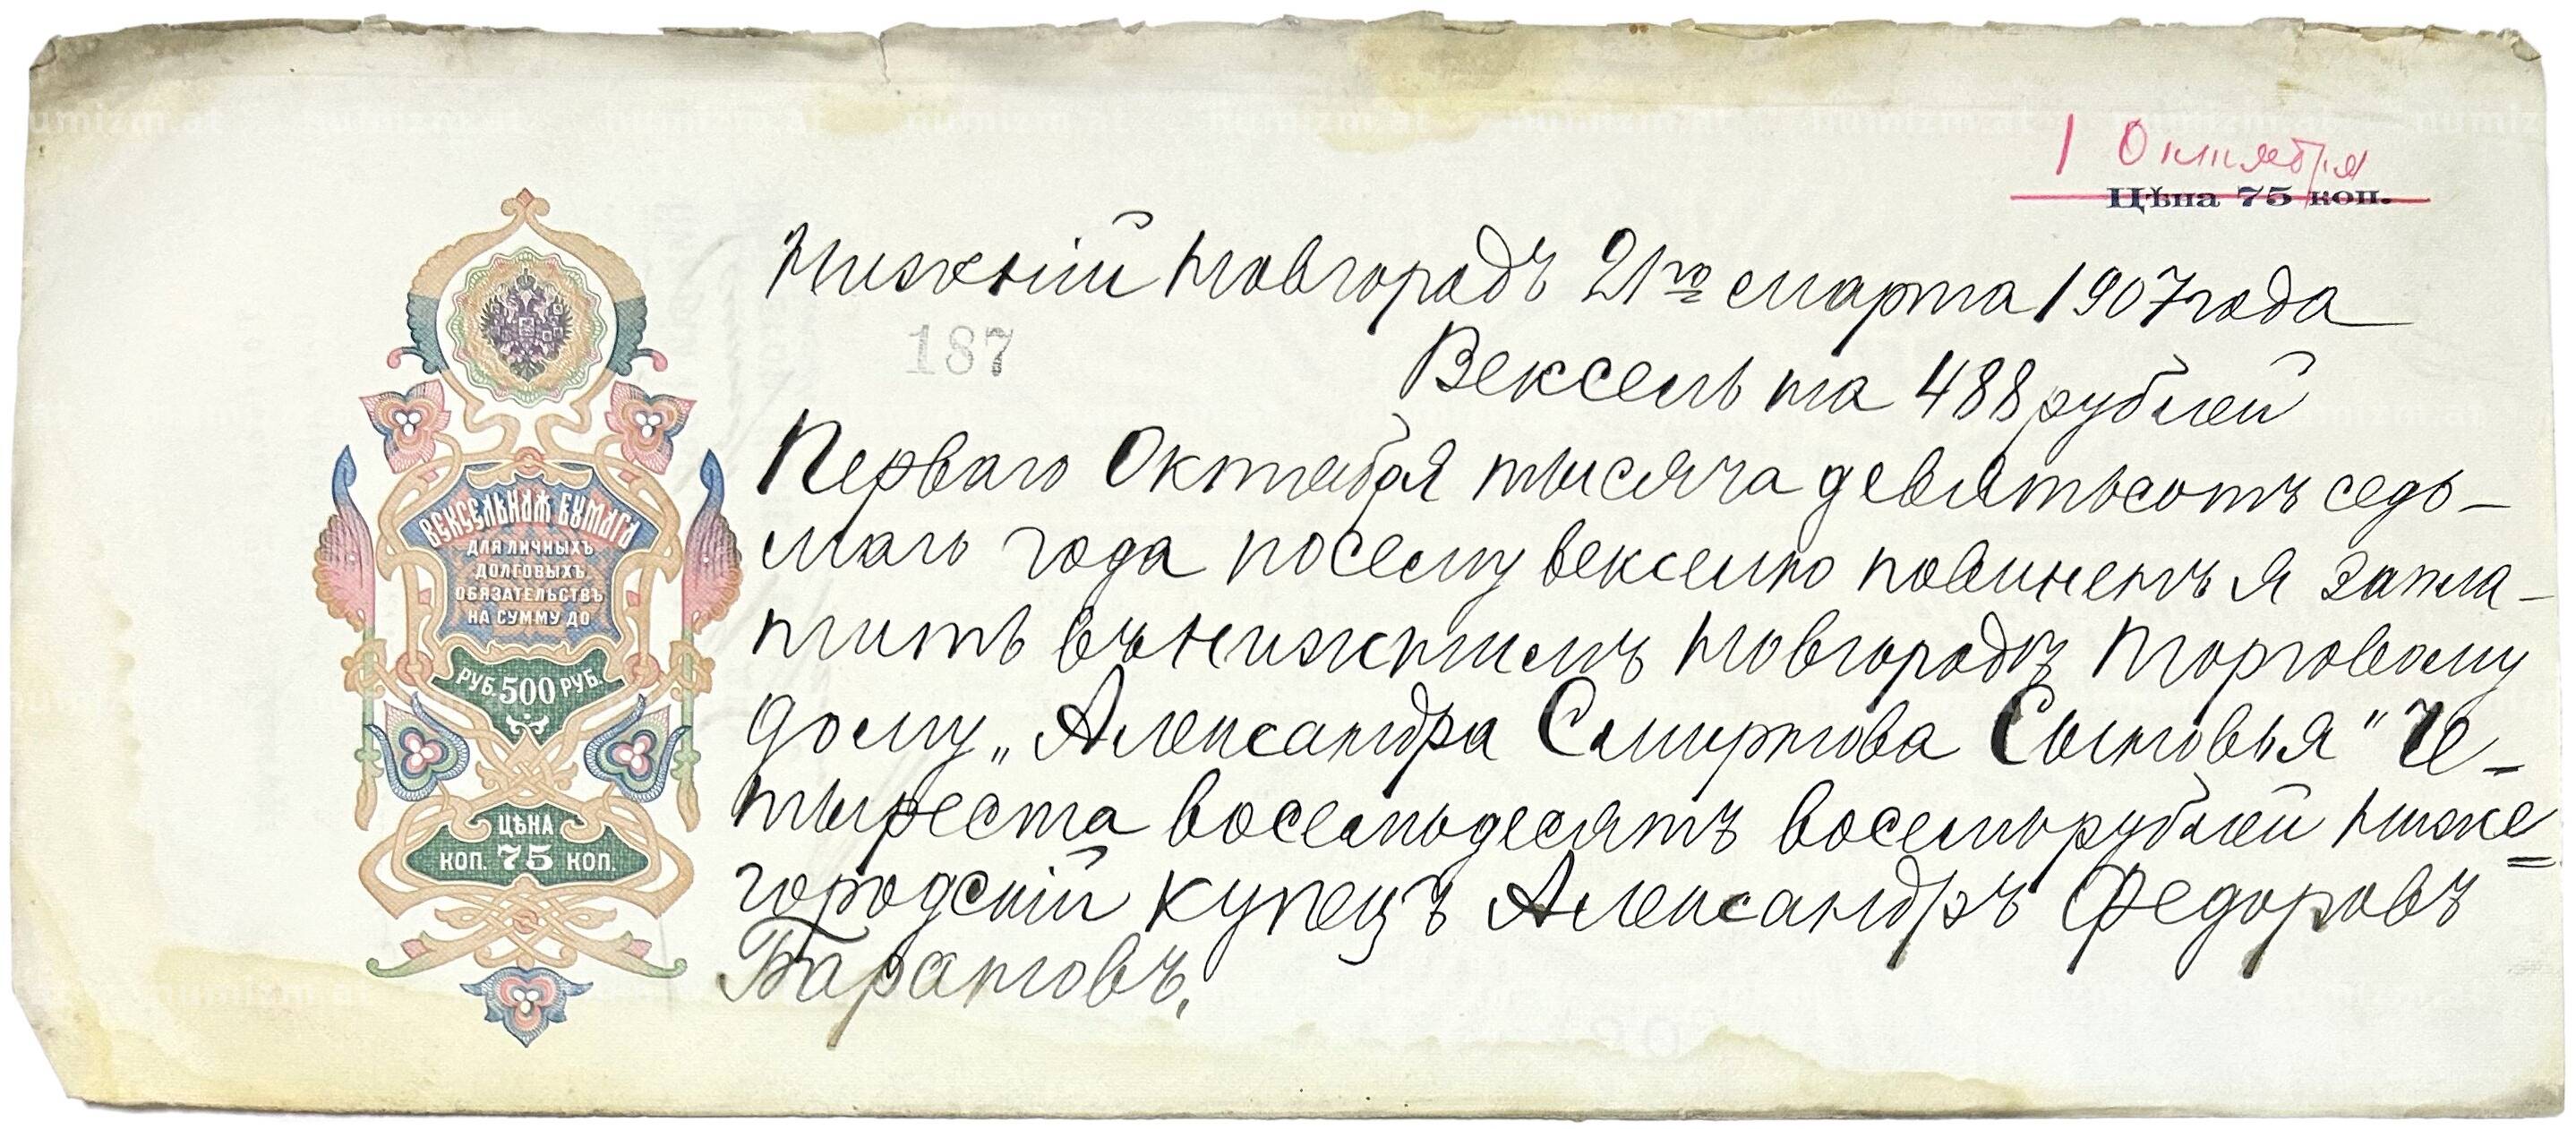 1 Октября
Цѣна 75 коп.
Нижній Новгородъ 21го марта 1907 года
187
Вексель на 488 рублей
Перваго Октября тысяча девятьсотъ седь-
маго года по сему векселю повиненъ я запла-
тить въ Нижнемъ Новгородѣ Торговому
дому „Александра Смирнова Сыновья" Че-
тыреста восемьдесятъ восемь рублей Ниже=
городскій купецъ Александръ Федоровъ
Барановъ.
ВЕКСЕЛЬНАЯ БУМАГА
ДЛЯ ЛИЧНЫХЪ
ДОЛГОВЫХЪ
ОБЯЗАТЕЛЬСТВЪ
НА СУММУ ДО
РУБ. 500 РУБ.
ЦѢНА
КОП. 75 КОП.
numizm.at